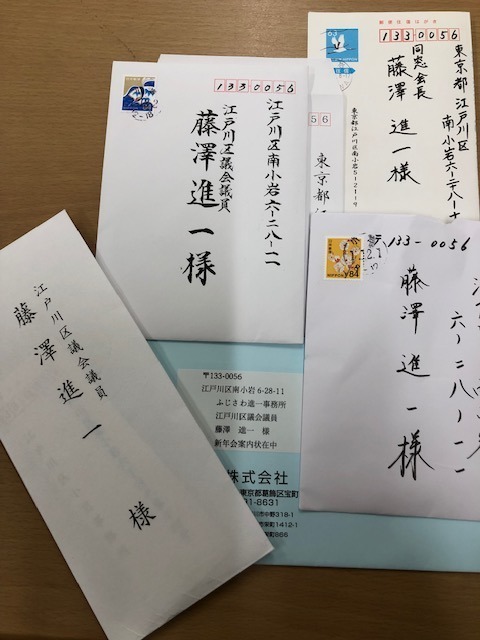 郵便往復はがき
1330056
東京都江戸川区
南小岩六-二八-十
同窓会長
藤澤進一様
往信
NIPPON
1330056
江戸川区南小岩六-二八-一一
江戸川区議会議員
藤澤進一様
56
東京都江
東京都江戸川区南小岩5-21-
133-0056
六ノ二八ノ一一
藤澤進一様
84
NIPPON
江戸川区議会議員
藤澤進一様
〒133-0056
江戸川区南小岩6-28-11
ふじさわ進一事務所
江戸川区議会議員
藤澤 進一 様
新年会案内状在中
株式会社
東京都葛飾区宝町
01-8631
川市中野318-1
市栄町1412-1
栄町866